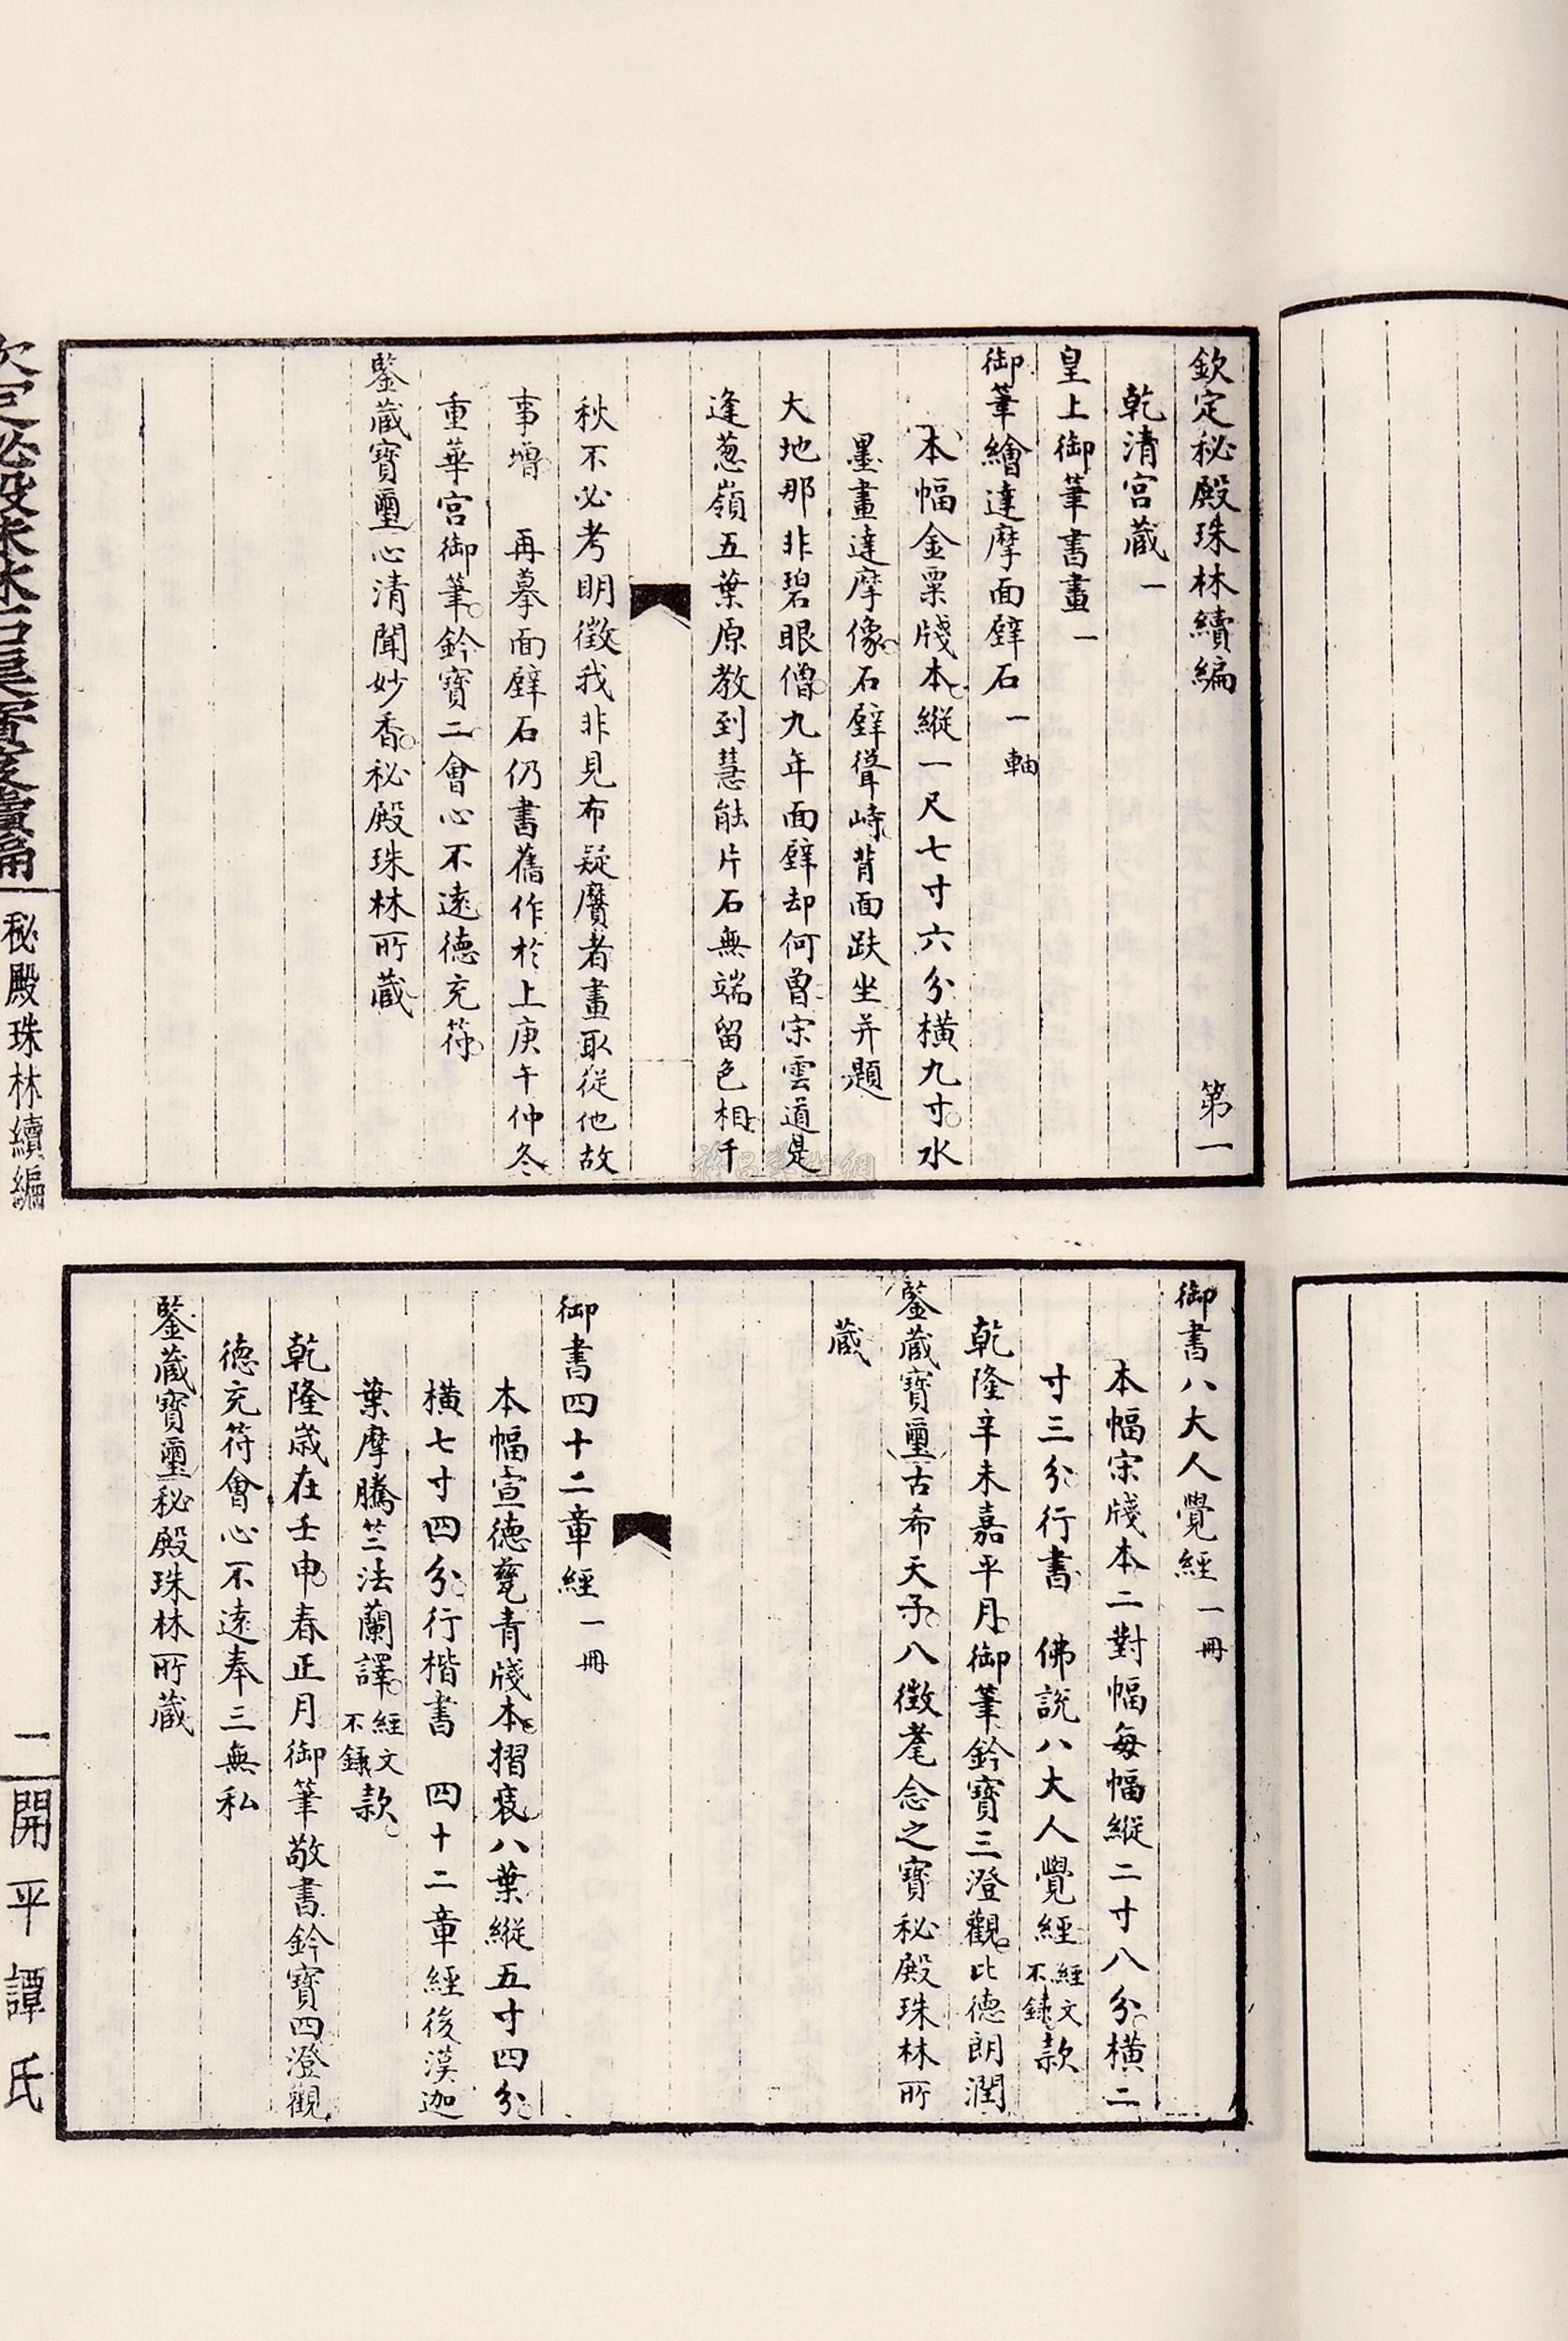 欽定秘殿珠林續編 第一
乾清宮藏一
皇上御筆書畫一
御筆繪達摩面壁石一軸
本幅金粟牋本縱一尺七寸六分橫九寸水
墨畫達摩像石壁聳峙背面趺坐并題
大地那非碧眼僧九年面壁却何曾宋雲道是
逢葱嶺五葉原教到慧能片石無端留色相千
秋不必考明徵我非見布疑贋者畫取從他故
事增 再摹面壁石仍書舊作於上庚午仲冬
重華宮御筆鈐寶二會心不遠德充符
鑒藏寶璽心清聞妙香秘殿珠林所藏
御書八大人覺經一冊
本幅宋牋本二對幅每幅縱二寸八分橫二
寸三分行書 佛說八大人覺經經文不錄款
乾隆辛未嘉平月御筆鈐寶三澄觀比德朗潤
鑒藏寶璽古希天子八徵耄念之寶秘殿珠林所
藏
御書四十二章經一冊
本幅宣德甆青牋本摺裝八葉縱五寸四分
橫七寸四分行楷書 四十二章經後漢迦
葉摩騰竺法蘭譯經文不錄款
乾隆歲在壬申春正月御筆敬書鈐寶四澄觀
德充符會心不遠奉三無私
鑒藏寶璽秘殿珠林所藏
秘殿珠林續編
一
開平譚氏